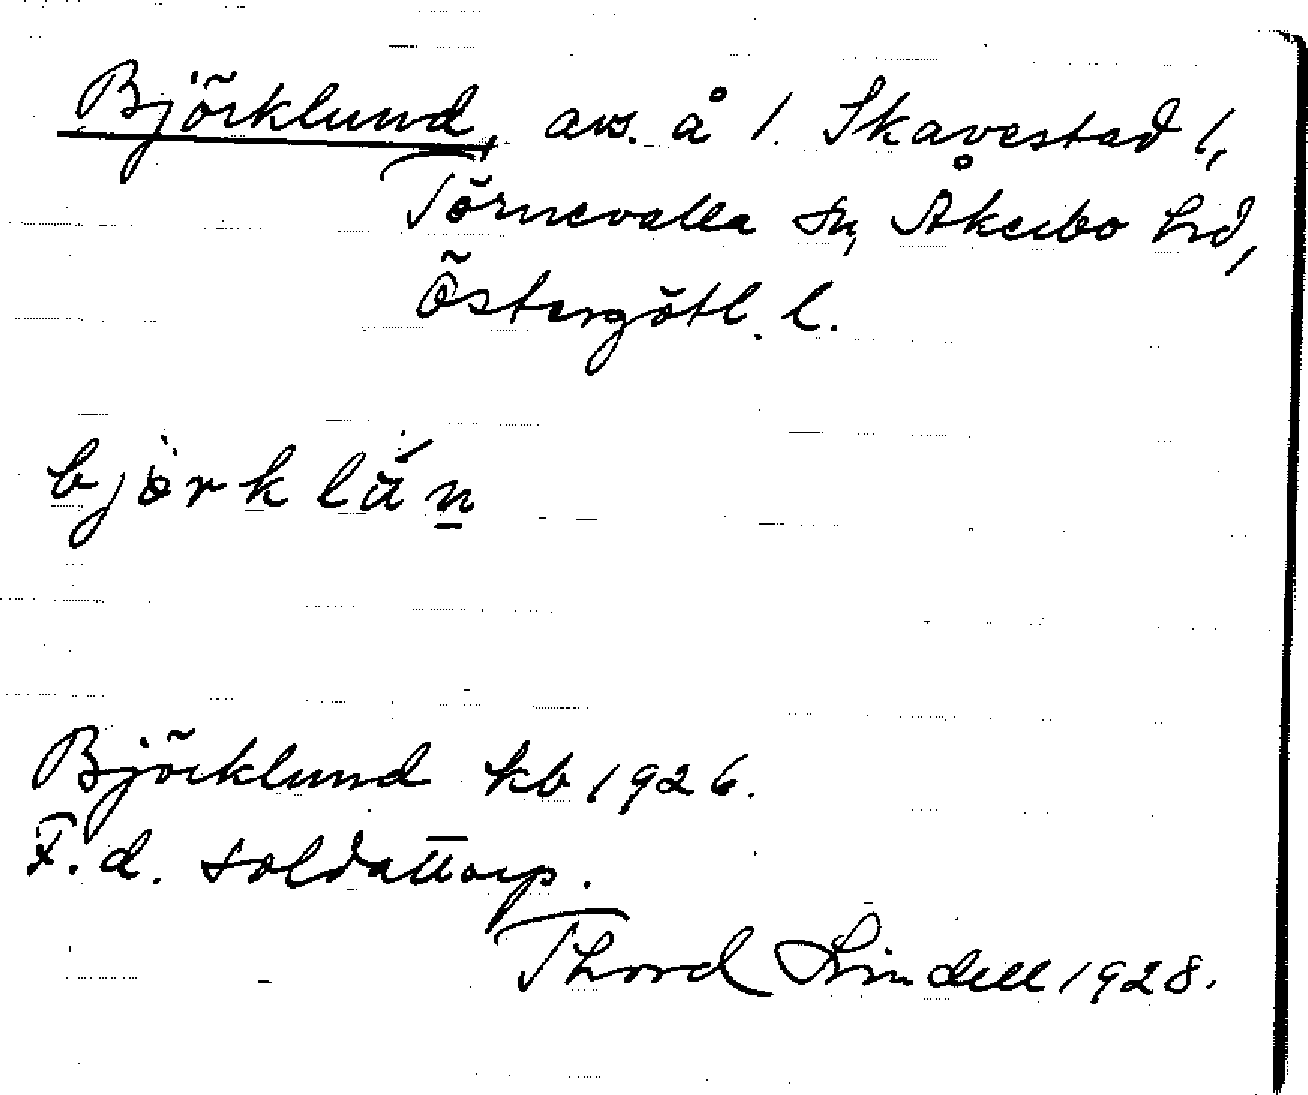 Björklund, avs. å 1. Skavestad 1,
Törnevalla sn, Åkerbo hd,
Östergötl. l.
björklún
Björklund kb 1926.
F.d. soldattorp.
Thord Lindell 1928.